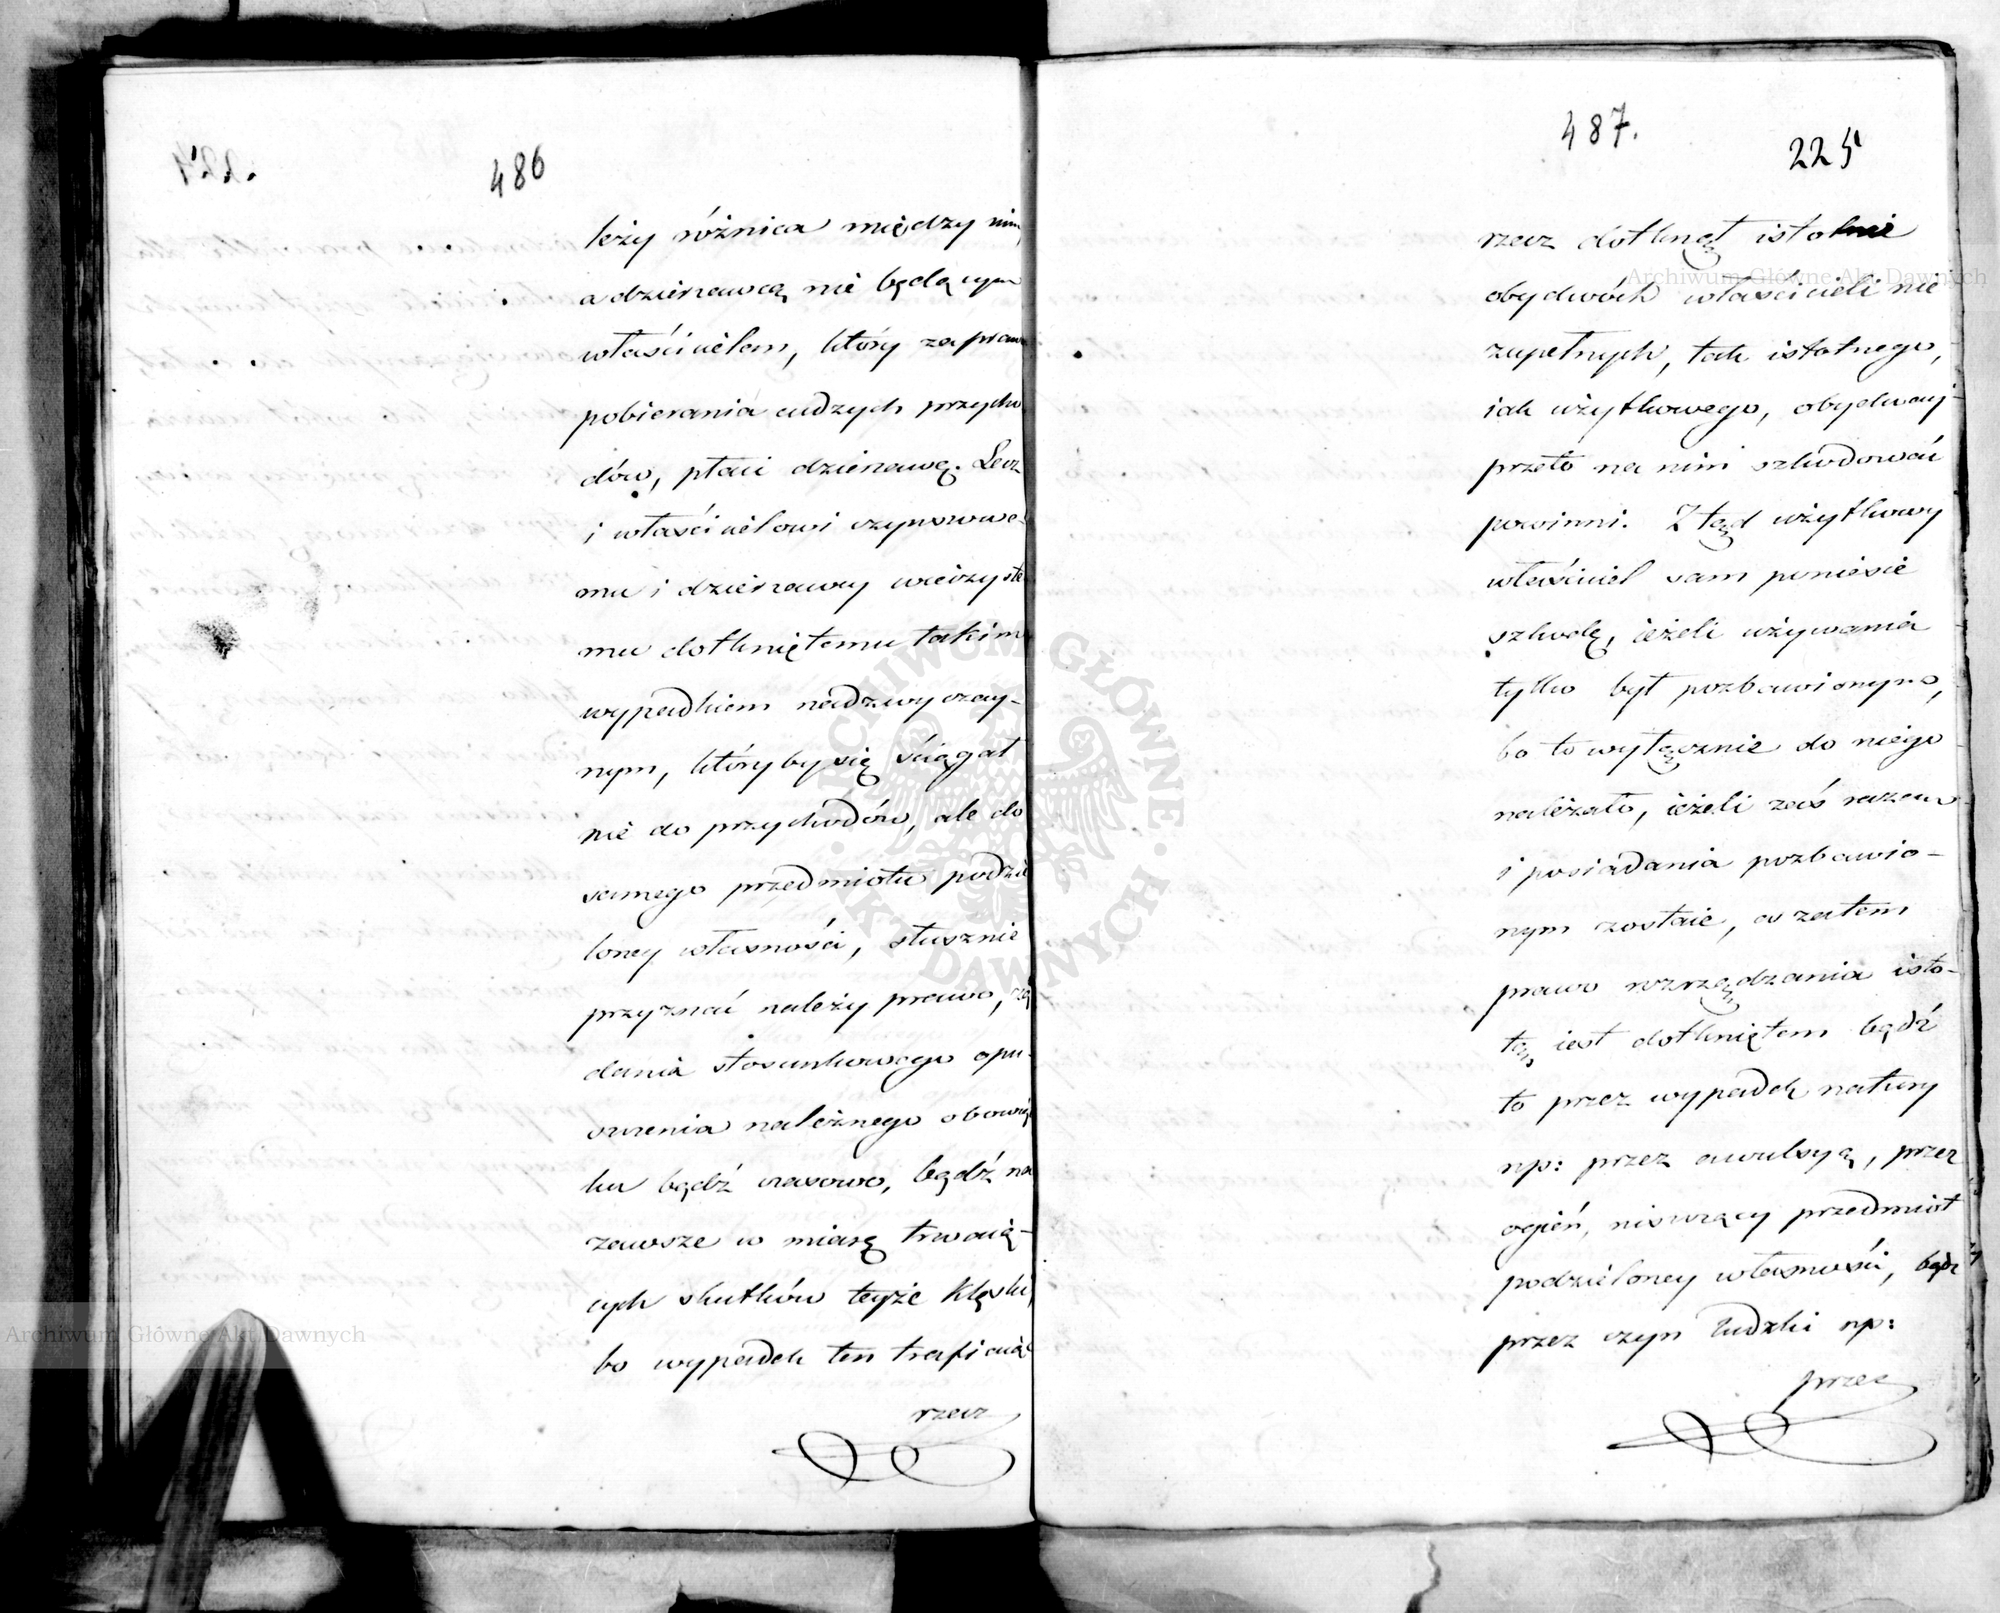 486
leży różnica między nim,
a dzierżawcą nie będącym
właścicielem, który za prawo
pobierania cudzych przycho
dów, płaci dzierżawę. Lecz
i właścicielowi czynszowe-
mu i dzierżawcy wieczyste
mu dotkniętemu takim
wypadkiem nadzwyczay-
nym, któryby się ściągał
nie do przychodów, ale do
samego przedmiotu podzie
loney własności, słusznie
przyznać należy prawo, żą
dania stosunkowego opu-
szczenia należnego obowiąz
ku bądź czasowo, bądź na
zawsze w miarę trwaią-
cych skutków teyże klęski,
bo wypadek ten trafiaiąc
rzecz
487.
225
rzecz dotknął istotnie
obydwóch właścicieli nie
zupełnych, tak istotnego,
iak użytkowego, obydwaj
przeto na nim szkodować
powinni. Ztąd użytkowy
właściciel sam poniesie
szkodę, ieżeli używania
tylko był pozbawionym,
bo to wyłącznie do niego
należało, ieżeli zaś razem
i posiadania pozbawio-
nym zostaie, a zatem
prawo rozrządzania isto-
tą iest dotkniętem bądź
to przez wypadek natury
np: przez awulsyą, przez
ogień, niszczący przedmiot
podzieloney własności, bądź
przez czyn ludzki np:
przez
Archiwum Główne Akt Dawnych
Archiwum Główne Akt Dawnych
ARCHIWUM GŁÓWNE AKT DAWNYCH